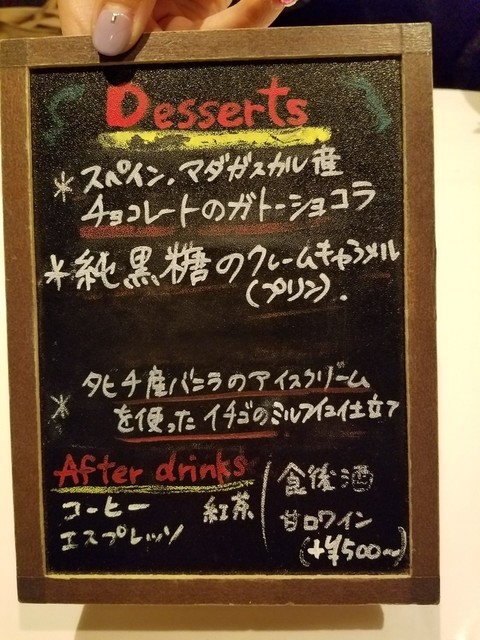 Desserts
* スペイン.マダガスカル産
チョコレートのガトーショコラ
* 純黒糖のクレームキャラメル
(プリン).
* タヒチ産バニラのアイスクリーム
を使った イチゴのミルフイユ仕立て
After drinks
コーヒー 紅茶
エスプレッソ
食後酒
甘口ワイン
(+¥500〜)